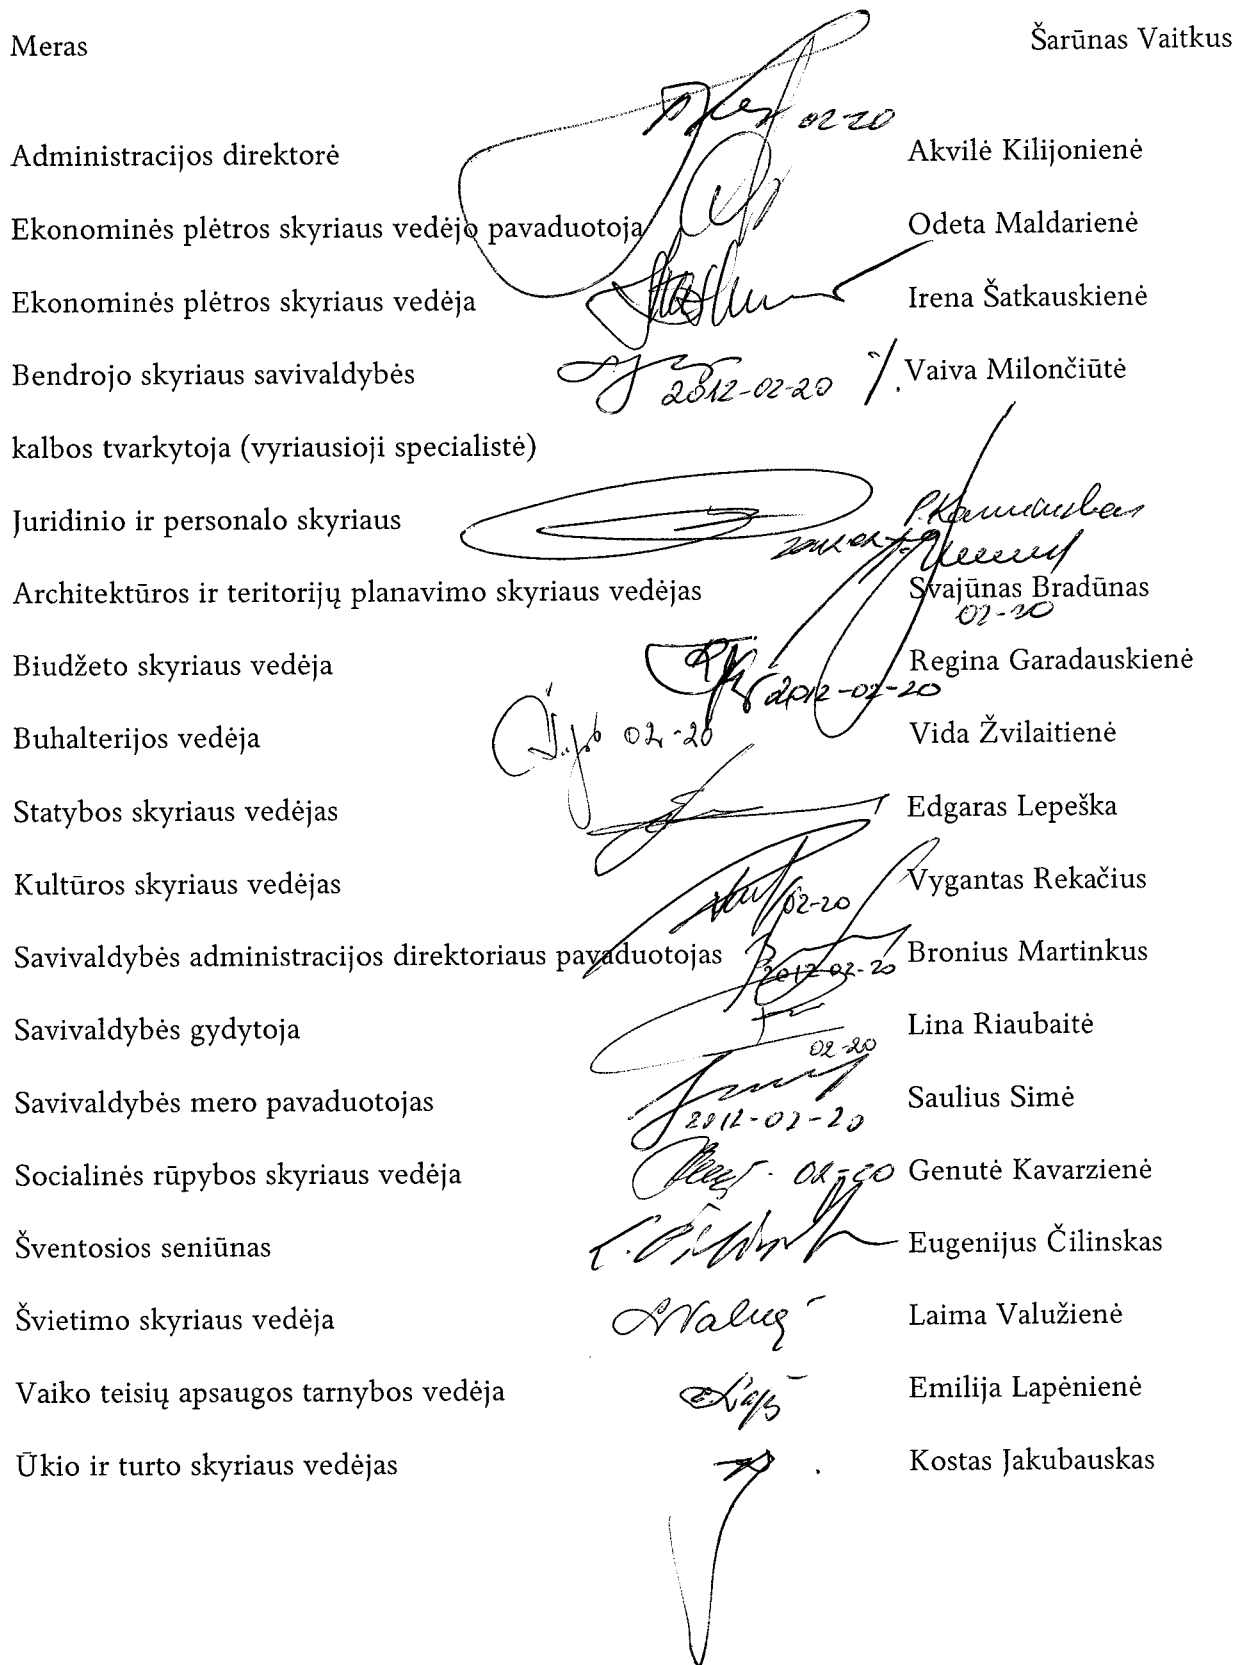 Meras Šarūnas Vaitkus
02-20
Administracijos direktorė Akvilė Kilijonienė
Ekonominės plėtros skyriaus vedėjo pavaduotoja Odeta Maldarienė
Ekonominės plėtros skyriaus vedėja Irena Šatkauskienė
Bendrojo skyriaus savivaldybės 2012-02-20 Vaiva Milončiūtė
kalbos tvarkytoja (vyriausioji specialistė)
Juridinio ir personalo skyriaus
Architektūros ir teritorijų planavimo skyriaus vedėjas Svajūnas Bradūnas
02-20
Biudžeto skyriaus vedėja 2012-02-20 Regina Garadauskienė
Buhalterijos vedėja 02-20 Vida Žvilaitienė
Statybos skyriaus vedėjas Edgaras Lepeška
Kultūros skyriaus vedėjas 02-20 Vygantas Rekačius
Savivaldybės administracijos direktoriaus pavaduotojas 2012-02-20 Bronius Martinkus
Savivaldybės gydytoja 02-20 Lina Riaubaitė
Savivaldybės mero pavaduotojas 2012-02-20 Saulius Simė
Socialinės rūpybos skyriaus vedėja 02-20 Genutė Kavarzienė
Šventosios seniūnas Eugenijus Čilinskas
Švietimo skyriaus vedėja Laima Valužienė
Vaiko teisių apsaugos tarnybos vedėja Emilija Lapėnienė
Ūkio ir turto skyriaus vedėjas Kostas Jakubauskas